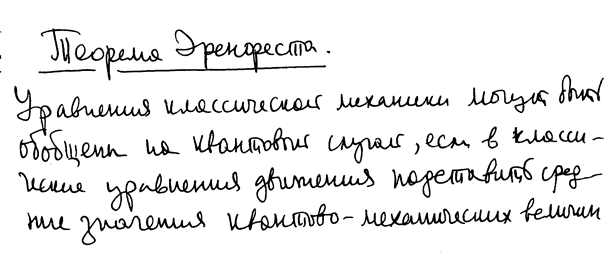 Теорема Эренфеста.
Уравнения классической механики могут быть
обобщены на квантовый случай, если в класси-
ческие уравнения движения подставить сред-
ние значения квантово-механических величин